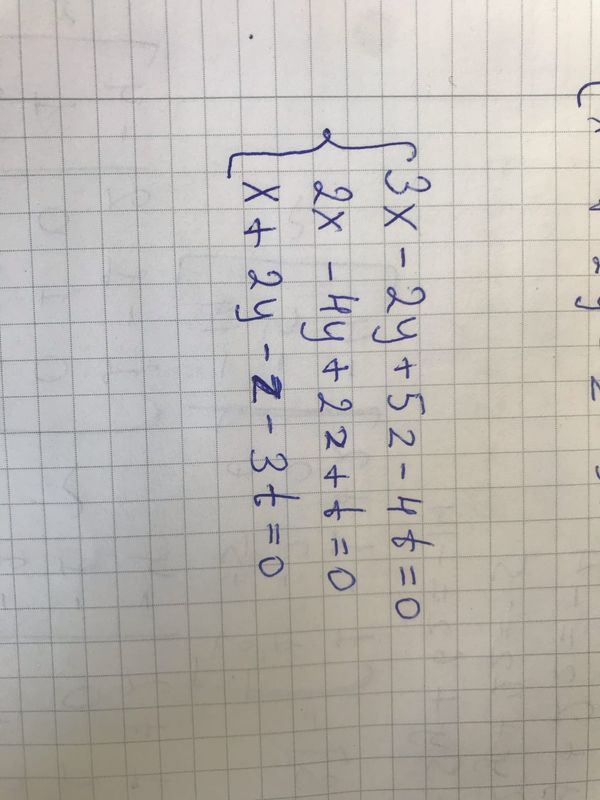 3x - 2y + 5z - 4t = 0
2x - 4y + 2z + t = 0
x + 2y - z - 3t = 0